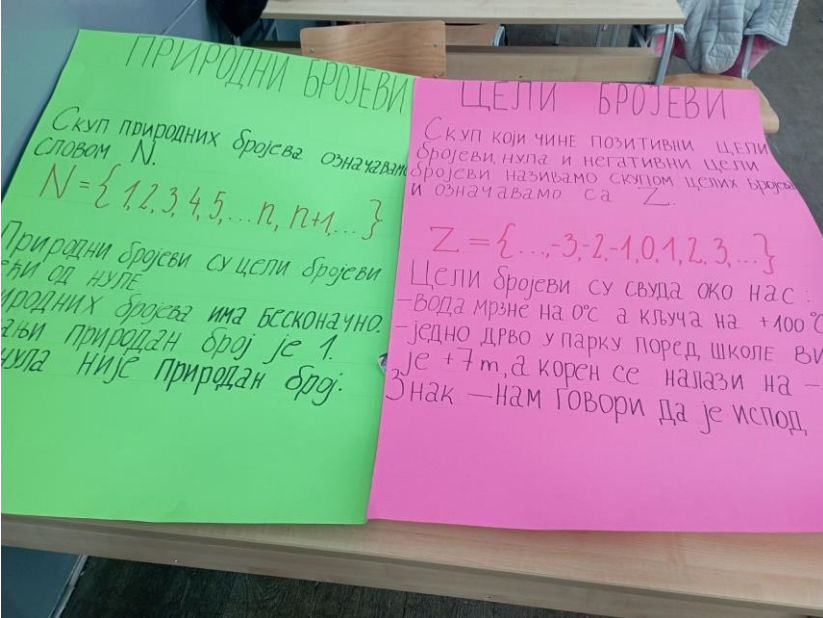 ПРИРОДНИ БРОЈЕВИ
Скуп природних бројева означавамо
словом N.
N = {1,2,3,4,5,...n, n+1,...}
Природни бројеви су цели бројеви
од нуле
бројева има бесконачно.
природан број је 1.
нула није природан број.
ЦЕЛИ БРОЈЕВИ
Скуп који чине позитивни цели
бројеви, нула и негативни цели
бројеви називамо скупом целих бројева
и означавамо са Z.
Z = {...,-3,-2,-1,0,1,2,3,...}
Цели бројеви су свуда око нас:
-вода мрзне на 0°C а кључа на +100°C
-једно дрво у парку поред школе
је +7m, а корен се налази на -
Знак — нам говори да је испод